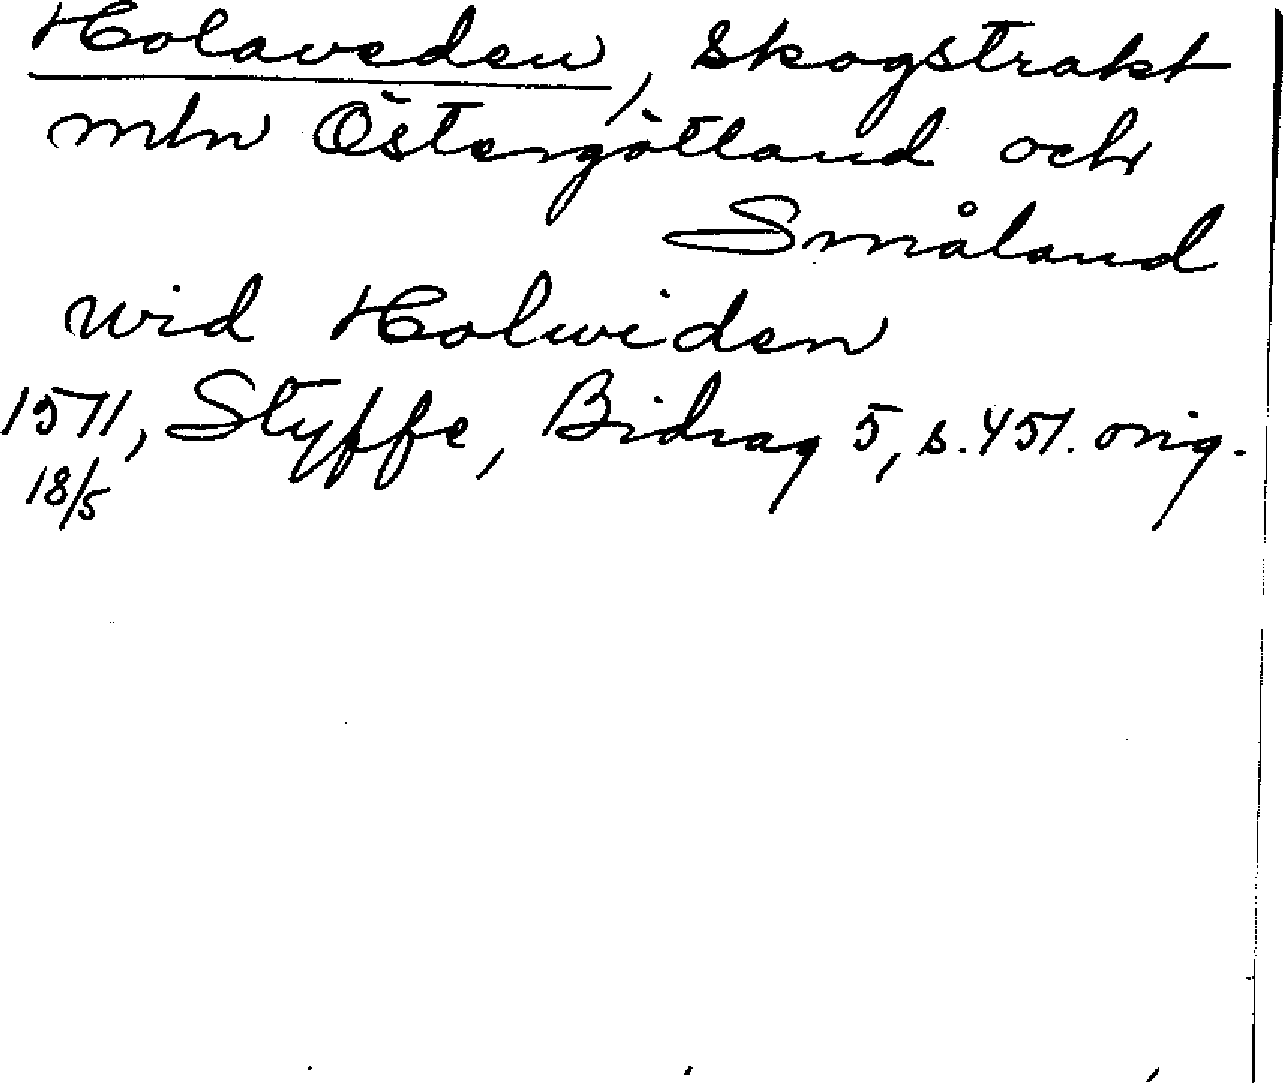 Holaveden, skogstrakt
mln Östergötland och
Småland
wid Holwiden
1511, Styffe, Bidrag 5, s. 451. orig.
18/5